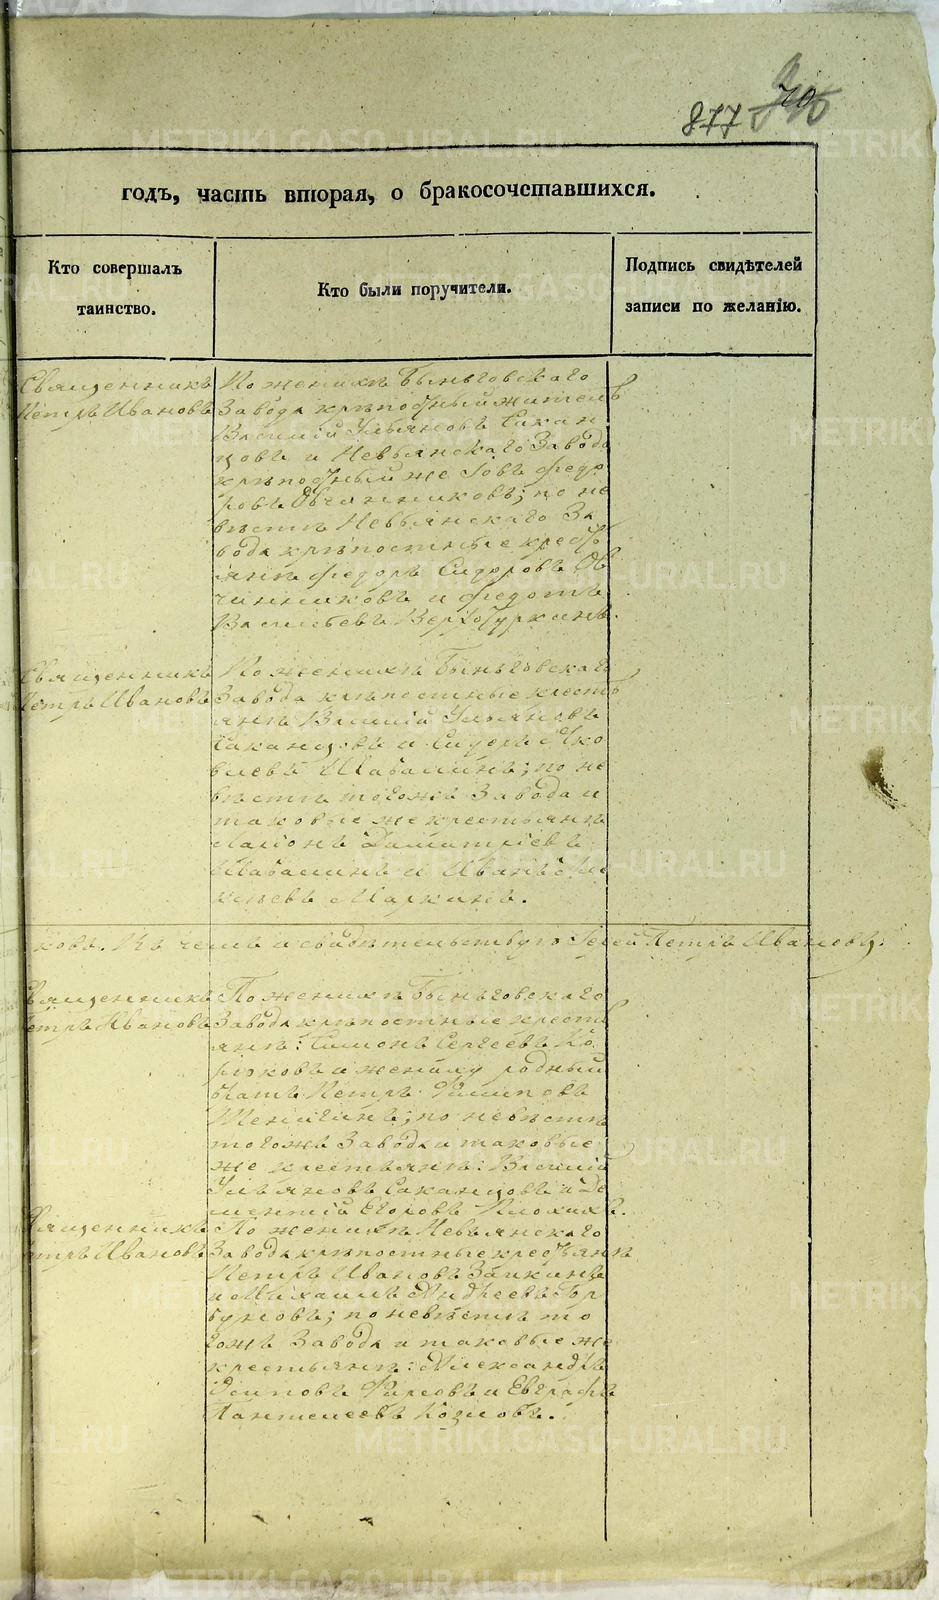 877
годъ, часть вторая, о бракосочетавшихся.
Кто совершалъ
таинство.
Кто были поручители.
Подпись свидѣтелей
записи по желанію.
Священникъ
Петръ Ивановъ
По женихѣ Быньговскаго
Завода крѣпостный житель
Василій Ульяновъ Сакан
цовъ и Невьянскаго Завода
крѣпостный же Федо
ровъ Овчинниковъ; по не
вѣстѣ Невьянскаго За
вода крѣпостные кресть
янѣ Федоръ Сидоровъ Ов
чинниковъ и Федотъ
Васильевъ Верхотуркинъ.
Священникъ
Петръ Ивановъ
По женихѣ Быньговскаго
Завода крѣпостные кресть
янѣ Василій Ульяновъ
Саканцовъ и Сидоръ Яко
влевъ Шабалинъ; по не
вѣстѣ тогожъ Завода и
таковые же крестьянѣ
Ларіонъ Дмитріевъ
Шабалинъ и Иванъ
Маркинъ.
ковъ. Въ чемъ и свидѣтельствую Іерей Петръ Ивановъ.
Священникъ
Петръ Ивановъ
По женихѣ Быньговскаго
Завода крѣпостные кресть
янѣ: Симонъ Сергеевъ Ко
рюковъ и жениху родный
братъ Петръ Филиповъ
по невѣстѣ
тогожъ Завода и таковые
же крестьянѣ: Василій
Ульяновъ Саканцовъ и Де
ментій Егоровъ
Священникъ
Петръ Ивановъ
По женихѣ Невьянскаго
Завода крѣпостные крестьянѣ
Петръ Ивановъ Заикинъ
и Михаилъ Андреевъ Гор
буновъ; по невѣстѣ то
гожъ Завода и таковые же
крестьянѣ: Александръ
Осиповъ Фирсовъ и Евграфъ
Пантелеевъ Козловъ.
METRIKI.GASO-URAL.RU